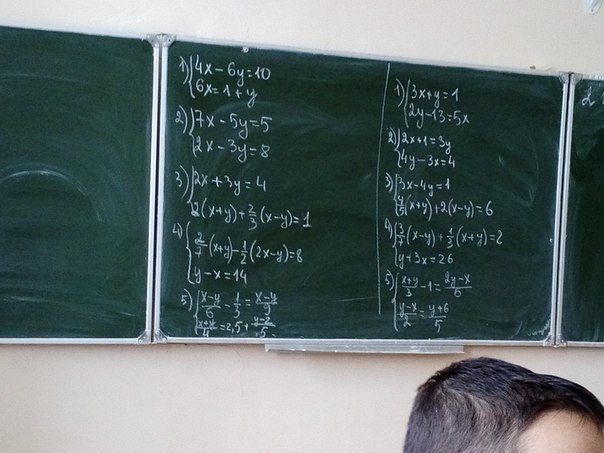 1) {4x - 6y = 10
6x = 1 + y
2) {7x - 5y = 5
2x - 3y = 8
3) {2x + 3y = 4
2(x+y) + 2/3(x-y) = 1
4) {2/7(x+y) - 1/2(2x-y) = 8
y - x = 14
5) {x-y/6 - 1/3 = x-y/9
x+y/4 = 2,5 +
1) {3x + y = 1
2y - 13 = 5x
2) {2x + 1 = 3y
4y - 3x = 4
3) {3x - 4y = 1
4/5(x+y) + 2(x-y) = 6
4) {3/7(x-y) + 1/3(x+y) = 2
y + 3x = 26
5) {x+y/3 - 1 = 2y-x/6
y-x/2 = y+6/5
2